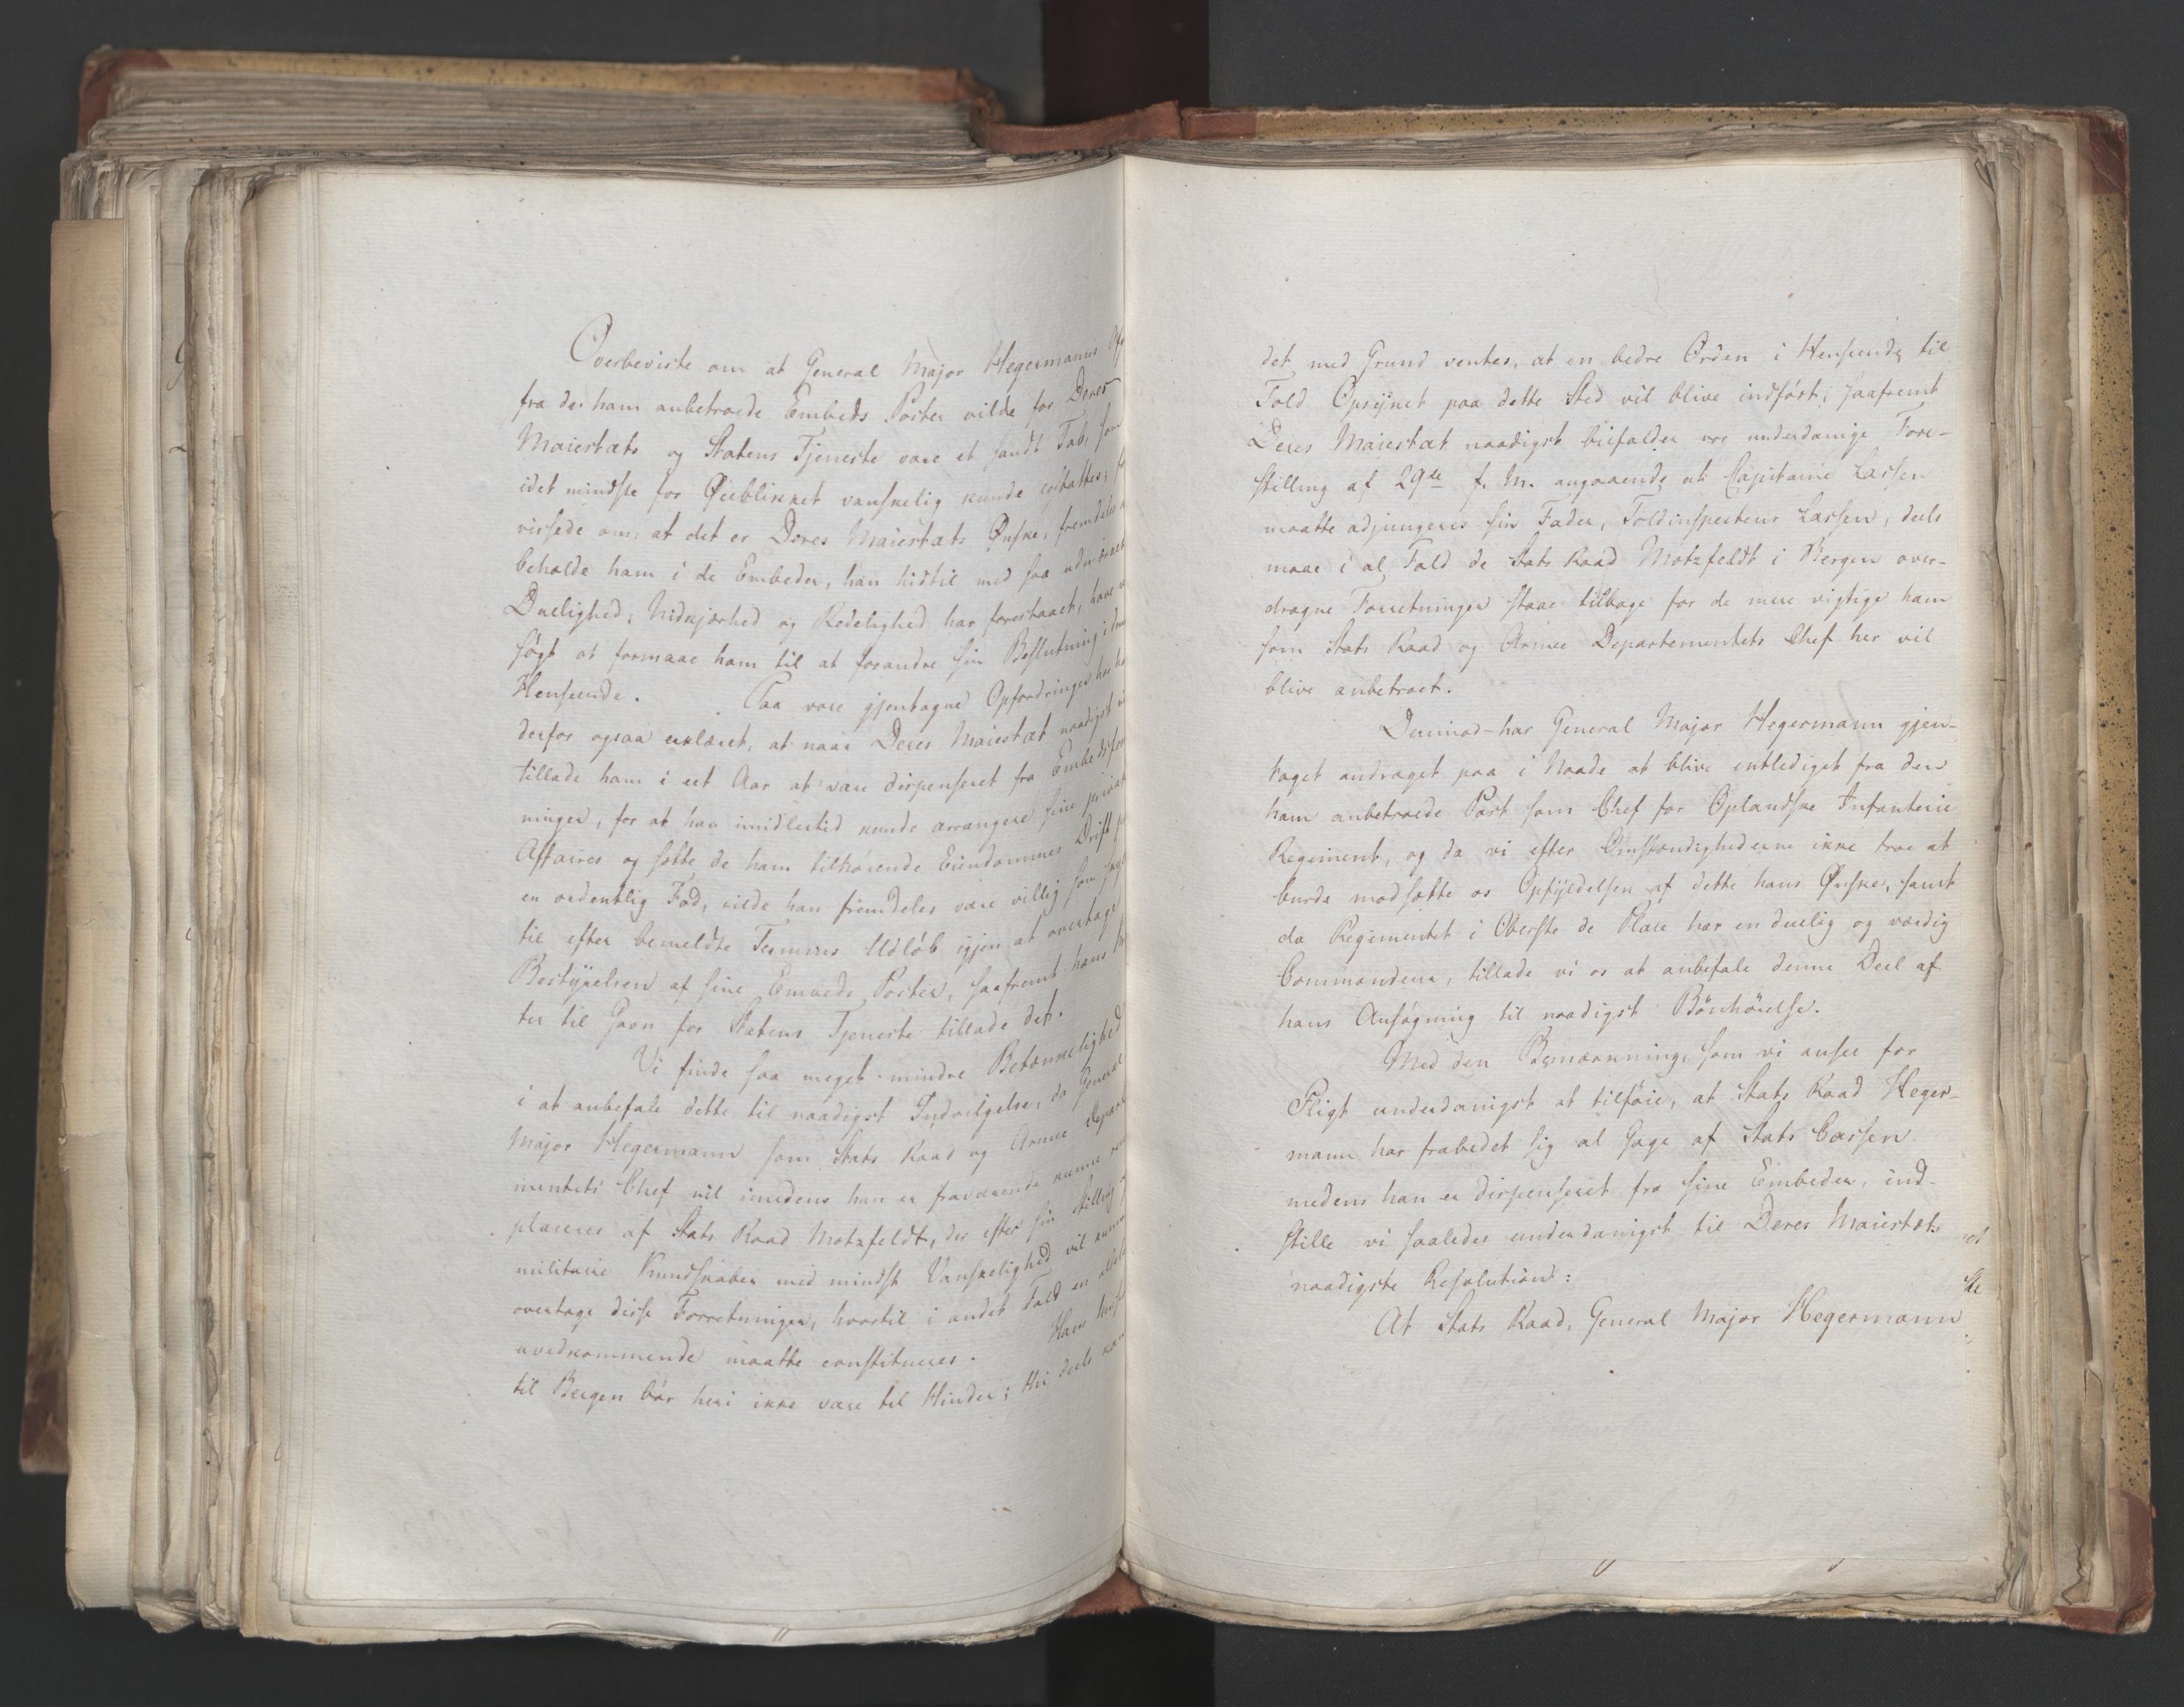 Overbeviste om at General Major Hegermanns
fra de ham anbetroede Embeds Poster vilde for Deres
Maiestæts og Statens Tjeneste være et sandt Tab, som
idet mindste for Øieblikket vanskelig kunde erstattes,
vissede om, at det er Deres Maiestæts Ønske, fremdeles
beholde ham i de Embeder, han hidtil med saa
Duelighed, Nidkjærhed og Redelighed har forestaaet, have
søgt at formaae ham til at forandre sin Beslutning i
Henseende. Paa vore gjentagne Opfordringer har
derfor ogsaa erklæret, at naar Deres Maiestæt naadigst
tillade ham i eet Aar at være dispenseret fra
ninger, for at han imidlertid kunde arrangere sine
Affaires og sætte de ham tilhørende Eiendommes Drift
en ordentlig Fod, vilde han fremdeles være villig som
til efter bemeldte Termins Udløb igjen at overtage
Bestyrelsen af sine Embeds Poster, saafremt hans
ter til Gavn for Statens Tjeneste tillade det.
Vi finde saa meget mindre Betænkelighed
i at anbefale dette til naadigst Indvilgelse, da General
Major Hegermann som Stats Raad og Armee
mentets Chef vil imedens han er fraværende kunne
placeres af Stats Raad Motzfeldt, der efter sin Stilling
militaire Kundskaber med mindst Vanskelighed vil kunne
overtage disse Forretninger, hvortil i andet Fald en
uvedkommende maatte constitueres. Hans
til Bergen bør heri ikke være til Hinder; thi deels
det med Grund ventes, at en bedre Orden i Henseende til
Told Opsynet paa dette Sted vil blive indført, saafremt
Deres Maiestæt naadigst biefalder vor underdanige Fore-
stilling af 29de f. M. angaaende at Capitaine Lassen
maatte adjungeres sin Fader, Toldinspecteur Lassen, deels
maae i al Fald de Stats Raad Motzfeldt i Bergen over-
dragne Forretninger staae tilbage for de mere vigtige ham
som Stats Raad og Armee Departementets Chef her vil
blive anbetroet.
Derimod har General Major Hegermann gjen-
taget andraget paa i Naade at blive entlediget fra den
ham anbetroede Post som Chef for Oplandske Infanterie
Regiment, og da vi efter Omstændighederne ikke troe at
burde modsætte os Opfyldelsen af dette hans Ønske, samt
da Regimentet i Oberste de Place har en duelig og værdig
Commandeur, tillade vi os at anbefale denne Deel af
hans Ansøgning til naadigst Bønhørelse.
Med den Bemærkning, som vi ansee for
Pligt underdanigst at tilføie, at Stats Raad Heger-
mann har frabedet sig al Gage af Stats Cassen
medens han er dispenseret fra sine Embeder, ind-
stille vi saaledes underdanigst til Deres Maiestæts
naadigste Resolution:
At Stats Raad, General Major Hegermann